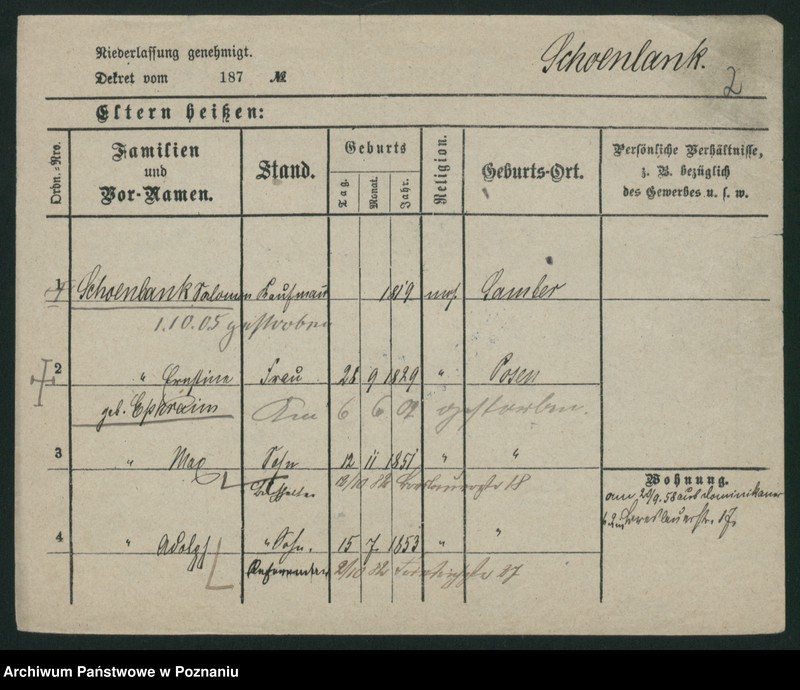 Niederlassung genehmigt.
Dekret vom 187 №
Schoenlank.
2
Eltern heißen:
Ordn.-Nro.
Familien und Vor-Namen.
Stand.
Geburts
Tag.
Monat.
Jahr.
Religion.
Geburts-Ort.
Persönliche Verhältnisse, z. B. bezüglich des Gewerbes u. s. w.
1 Schoenlank Salomon Kaufmann 1819 mos. Samter
1.10.05 gestorben
2 " Ernestine Frau 28 9 1829 " Posen
geb. Ephraim Am 6 6 02 gestorben.
3 " Max Sohn 12 11 1851 " "
Breslauerstr 18
Wohnung.
am 20/9. 58 aus Dominikaner
Breslauerstr. 17.
4 " Adolph "Sohn. 15 7 1853 " "
Referendar 2/10 17
Archiwum Państwowe w Poznaniu